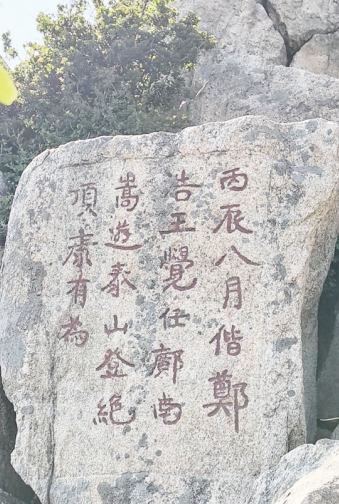 丙辰八月偕鄭
告王覺任鄺曲
嵩遊泰山登絕
頂康有為